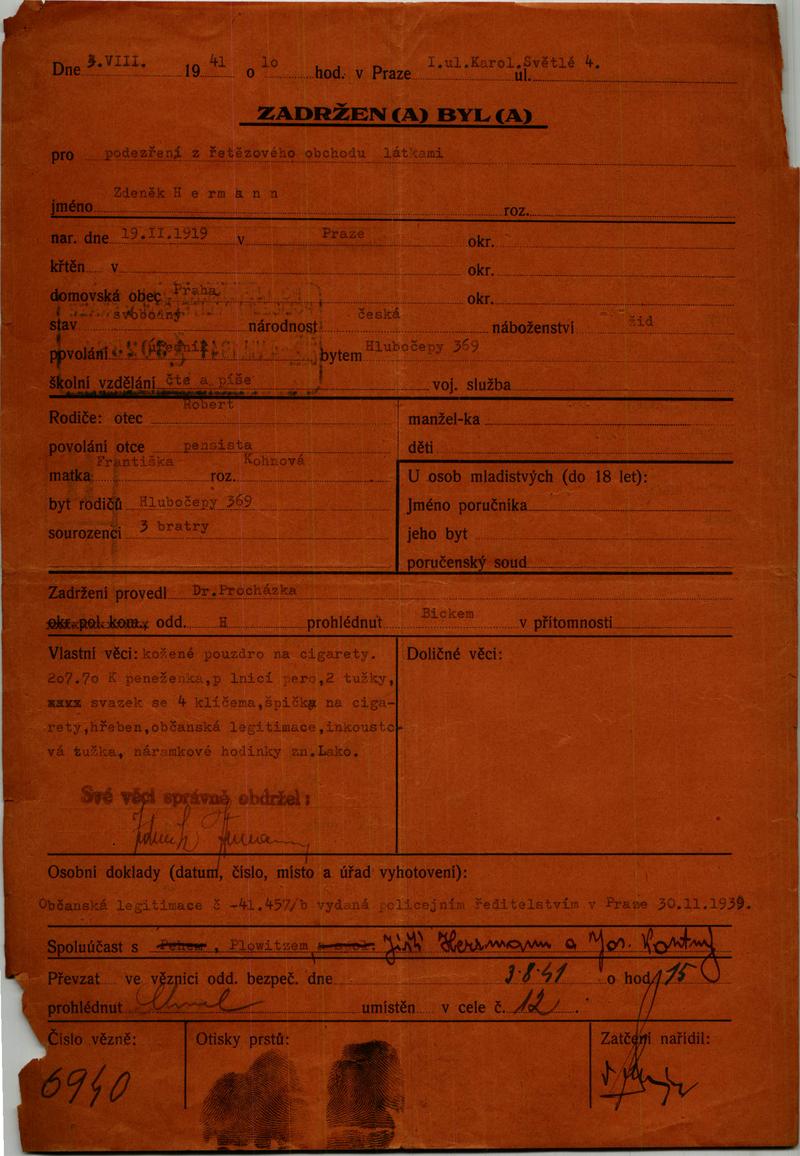 Dne 3.VIII. 19 41 o 1o hod. v Praze I.ul.Karol.Světlé 4. ul.
ZADRŽEN(A) BYL(A)
pro podezření z řetězového obchodu látkami
jméno Zdeněk H e r m a n n roz.
nar. dne 19.II.1919 v Praze okr.
křtěn v okr.
domovská obec Praha okr.
stav svobodný národnost česká náboženství žid
povolání bytem Hlubočepy 369
školní vzdělání čte a píše voj. služba
Rodiče: otec Robert manžel-ka
povolání otce pensista děti
matka Františka roz. Kohnová
U osob mladistvých (do 18 let):
byt rodičů Hlubočepy 369 Jméno poručníka
sourozenci 3 bratry jeho byt
poručenský soud
Zadržení provedl Dr.Procházka
okr. pol. kom. odd. H prohlédnut Bickem v přítomnosti
Vlastní věci: kožené pouzdro na cigarety. Doličné věci:
2o7.7o K peneženka,p lnicí pero,2 tužky,
xxxx svazek se 4 klíčema,špička na ciga-
rety,hřeben,občanská legitimace,inkousto-
vá tužka, náramkové hodinky zn.Lako.
Své věci správně obdržel:
Osobní doklady (datum, číslo, místo a úřad vyhotovení):
Občanská legitimace č -41.457/b vydaná policejním ředitelstvím v Praze 30.11.1939.
Spoluúčast s , Plowitzem, Jiří Herrmann a Jos.
Převzat ve věznici odd. bezpeč. dne 3.8.41 o hod 15
prohlédnut umístěn v cele č. 12.
Číslo vězně: Otisky prstů: Zatčení nařídil:
6940